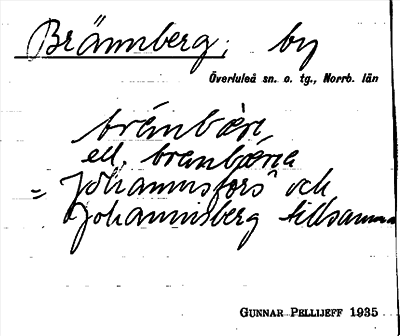 Brännberg; by
Överluleå sn. o. tg., Norrb. län
bränbæri
ell. branbæria
= Johannisfors och
Johannisberg tillsamma
GUNNAR PELLIJEFF 1935